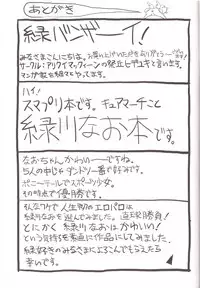 あとがき
緑バンザーイ!
みなさまこんにちは。お買い上げいただきありがとうございます!
サークル:アリライマッフィーンの発丘ヒデユキと言います。
マンガ家を細々とやってます。
ハイ!
スマプリ本です。キュアマーチこと
緑川なお本です。
なおちゃんかわいーですね。
5人の中じゃダントツ一番で好みです。
ポニーテールでスポーツ少女。
その時点で優勝です。
そんなワケで人生初のエロパロは
緑川なおを選んでみました。直球勝負!
とにかく緑川なおはかわいい!
という気持ちを素直に作品にしてみました。
緑好きのみなさまによろこんでもらえたら
幸いです。